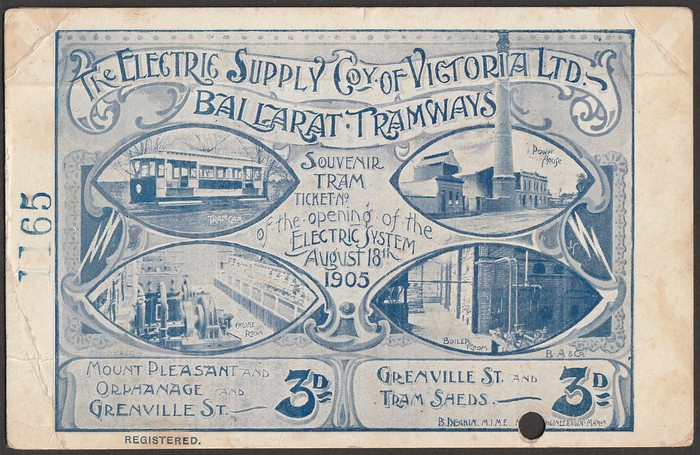 The Electric Supply Coy. of Victoria Ltd.
Ballarat Tramways
Souvenir
Tram
Ticket No
of the opening of the
Electric System
August 18th
1905
Tram Car
Power
House
Engine
Room
Boiler
Room
B.A & Co
1165
Mount Pleasant and
Orphanage and
Grenville St.
3D
Grenville St. and
Tram Sheds.
3D
B. Deakin, M.I.M.E.
REGISTERED.